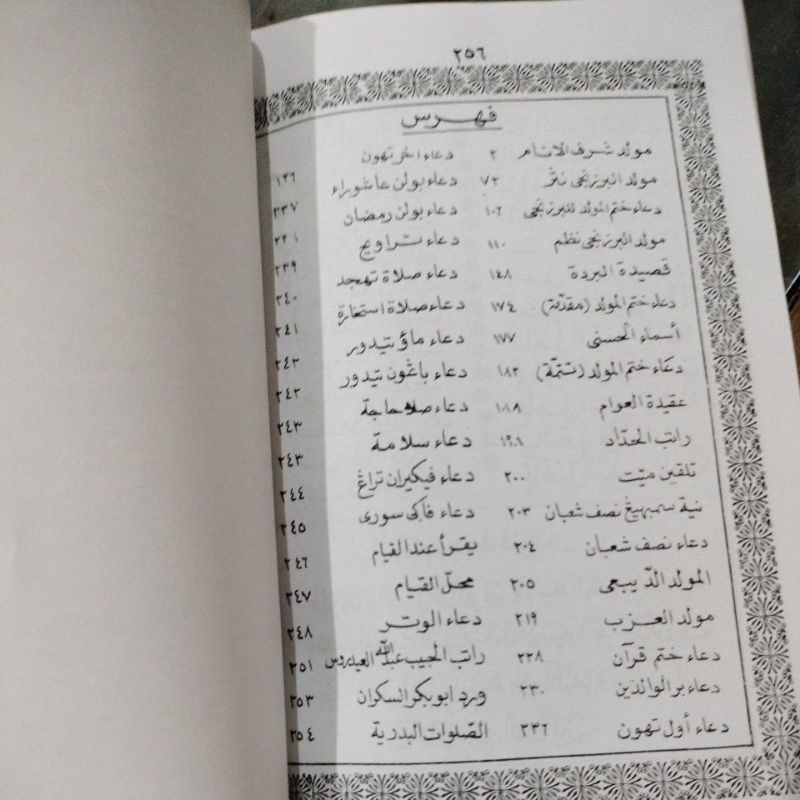 ٢٥٦
فهرس
مولد شرف الانام ٢
مولد البرزنجى نثر ٧٢
دعاء ختم المولد للبرزنجى ١٠٦
مولد البرزنجى نظم ١١٠
قصيدة البردة ١٤٨
دعاء ختم المولد (مقدمة) ١٧٤
أسماء الحسنى ١٧٧
دعاء ختم المولد (تتمة) ١٨٢
عقيدة العوام ١٨٨
راتب الحدّاد
تلقين ميّت ٢٠٠
نية سمبهيڠ نصف شعبان ٢٠٣
دعاء نصف شعبان ٢٠٤
المولد الدّيبعى ٢٠٥
مولد العزب ٢١٩
دعاء ختم قرآن ٢٢٨
دعاء بر الوالدين ٢٣٠
دعاء أول تهون ٢٣٦
دعاء اخر تهون
دعاء بولن عاشوراء ٢٣٧
دعاء بولن رمضان
دعاء تراويح ٢٣٩
دعاء صلاة تهجد ٢٤٠
دعاء صلاة استخارة ٢٤١
دعاء ماؤ تيدور ٢٤٢
دعاء باڠون تيدور ٢٤٢
دعاء صلاحاجة ٢٤٣
دعاء سلامة ٢٤٣
دعاء فيكيران تراڠ ٢٤٤
دعاء فاكى سورى ٢٤٥
يقرأ عند القيام ٢٤٦
محلّ القيام ٢٤٧
دعاء الوتر ٢٤٨
راتب الحبيب عبد الله العيدروس ٢٥١
ورد ابو بكر السكران ٢٥٣
الصلوات البدرية ٢٥٤